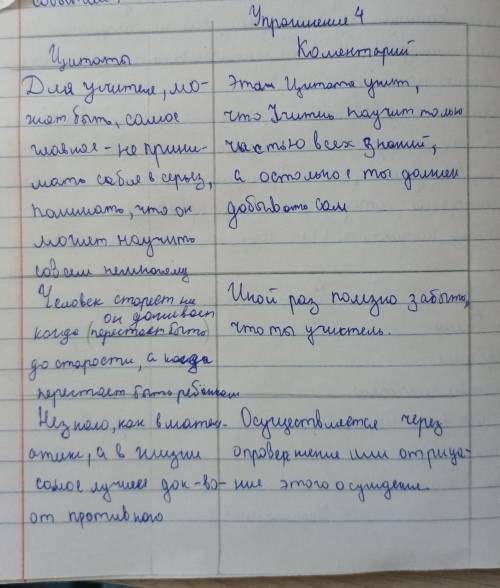 Упражнение 4
Цитаты
Коментарий
Для учителя, мо-
жет быть, самое
главное - не прини-
мать себя в серьз,
понимать, что он
может научить
совсем немногому
Этам Цитата учит,
что Учитиль научит только
частью всех знаний,
а остольное ты должен
добывать сам
Человек стареет не
он доживает
когда (перестает быть)
до старости, а когда
перестает быть ребёнком
Иной раз полезно забыть,
что ты учитель.
Не знаю, как в матем-
атике, а в жизни
самое лучшее док-во-
от противного
Осуществляется через
опровержение или отрица-
ние этого осуждения.